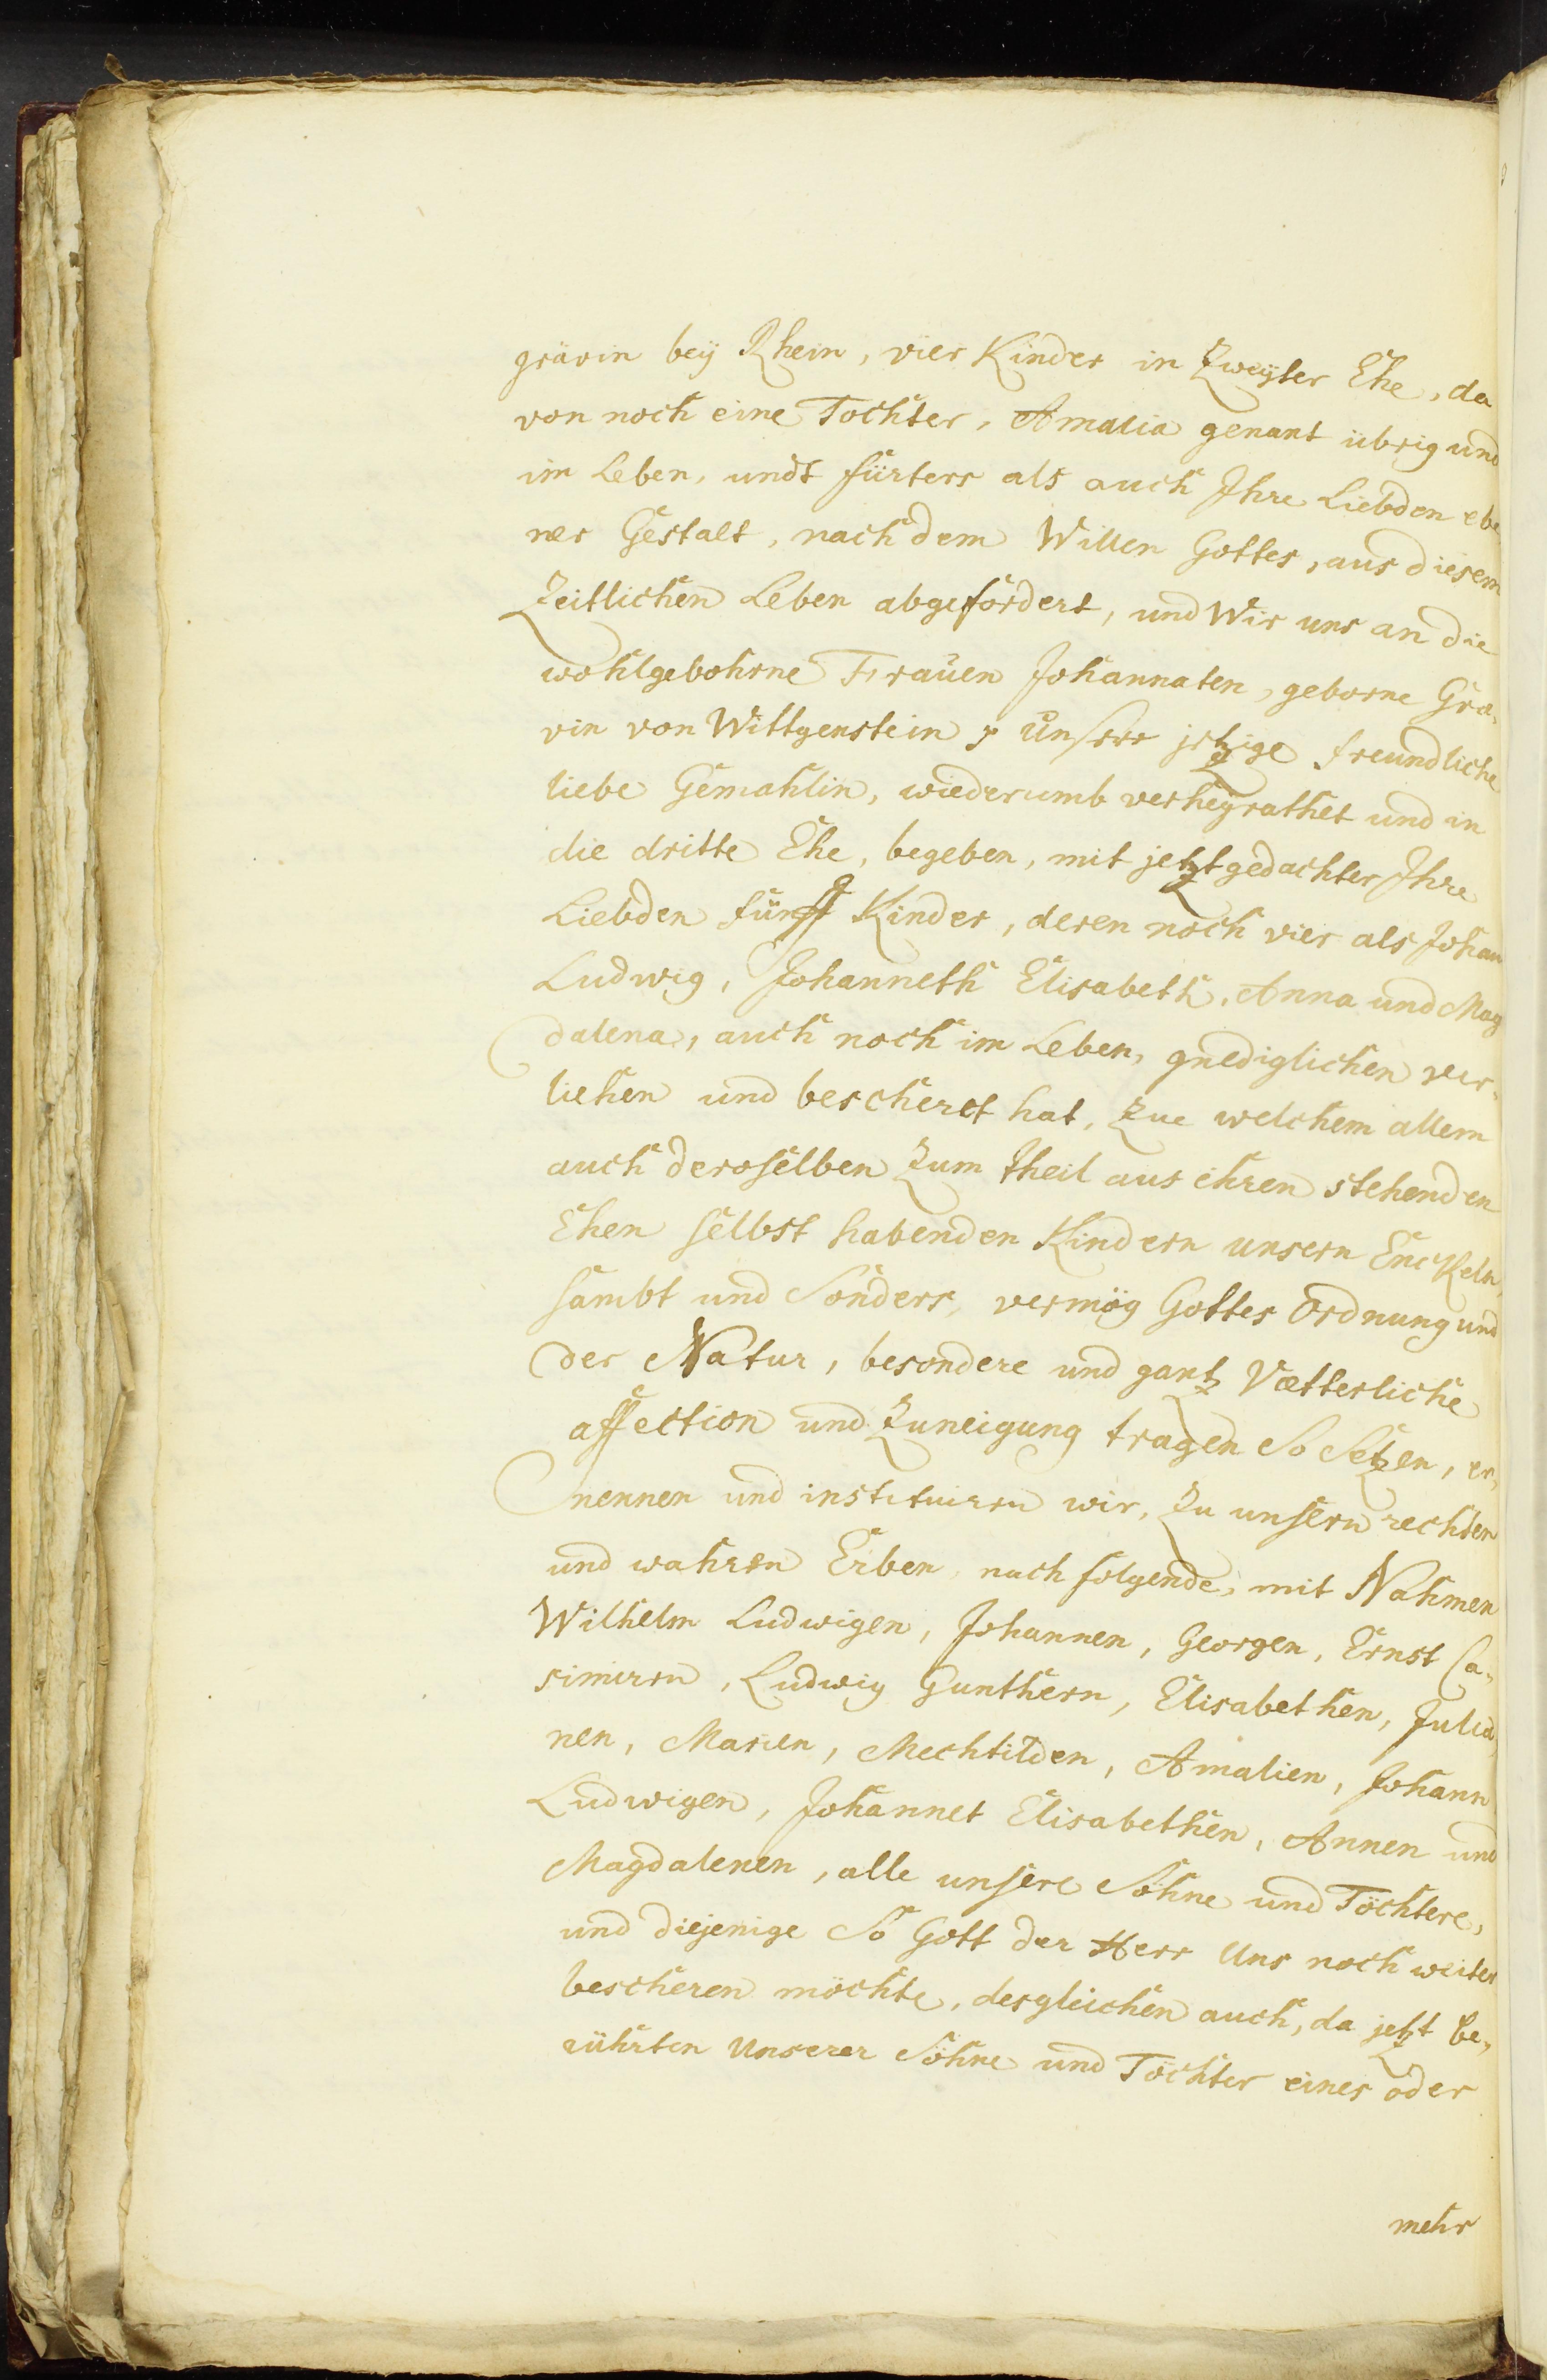 grävin beÿ Rhein, vier Kinder in Zweÿter Ehe, da
von noch eine Tochter, Amalia genant übrig und
im Leben, undt fürters als auch Ihre Liebden ebe
ner Gestalt, nach dem Willen Gottes, aus diesem
Zeitlichen Leben abgefordert, und Wir uns an die
wohlgebohrne Frauen Johannaten, geborne Grä-
vin von Wittgenstein unsere jetzige freundliche
liebe Gemahlin, wiederumb verheÿrathet und in
die dritte Ehe, begeben, mit jetztgedachter Ihre
Liebden fünff Kinder, deren noch vier als Johan
Ludwig, Johanneth Elisabeth, Anna und Mag
dalena, auch noch im Leben, gnediglichen ver-
liehen und bescheret hat, Zue welchem allem
auch deroselben Zum theil aus ihren stehenden
Ehen selbst habenden Kindern unsern Enckeln,
sambt und Sonders, vermög Gottes Ordnung und
der Natur, besondere und gantz Vætterliche
affection und Zuneigung tragen So Setzen, er-
nennen und instituiren wir, Zu unsern rechten
und wahren Erben, nach folgende, mit Nahmen
Wilhelm Ludwigen, Johannen, Georgen, Ernst Ca-
simiren, Ludwig Gunthern, Elisabethen, Julia
nen, Marien, Mechtilden, Amalien, Johann
Ludwigen, Johannet Elisabethen, Annen und
Magdalenen, alle unsere Söhne und Töchtere,
und diejenige So Gott der Herr Uns noch weiter
bescheren möchte, desgleichen auch, da jetzt be-
rührten Unserer Söhne und Töchter eines oder
mehr